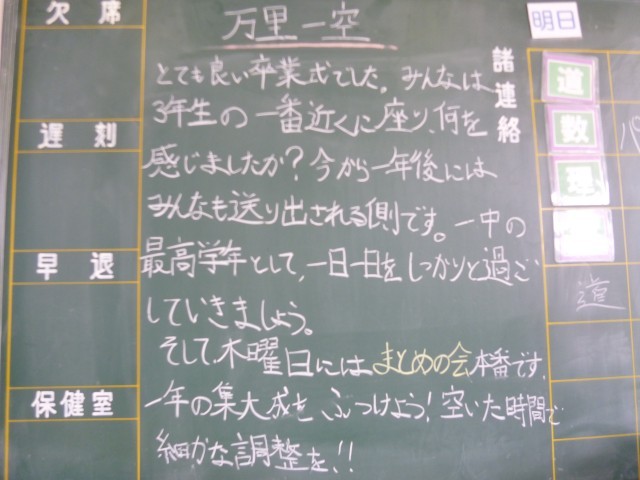 欠席
遅刻
早退
保健室
万里一空
とても良い卒業式でした。みんなは
3年生の一番近くに座り、何を
感じましたか？今から一年後には
みんなも送り出される側です。一中の
最高学年として、一日一日をしっかりと過ご
していきましょう。
そして、木曜日にはまとめの会本番です。
一年の集大成をぶつけよう！空いた時間で
細かな調整を!!
諸連絡
明日
道
数
理
道